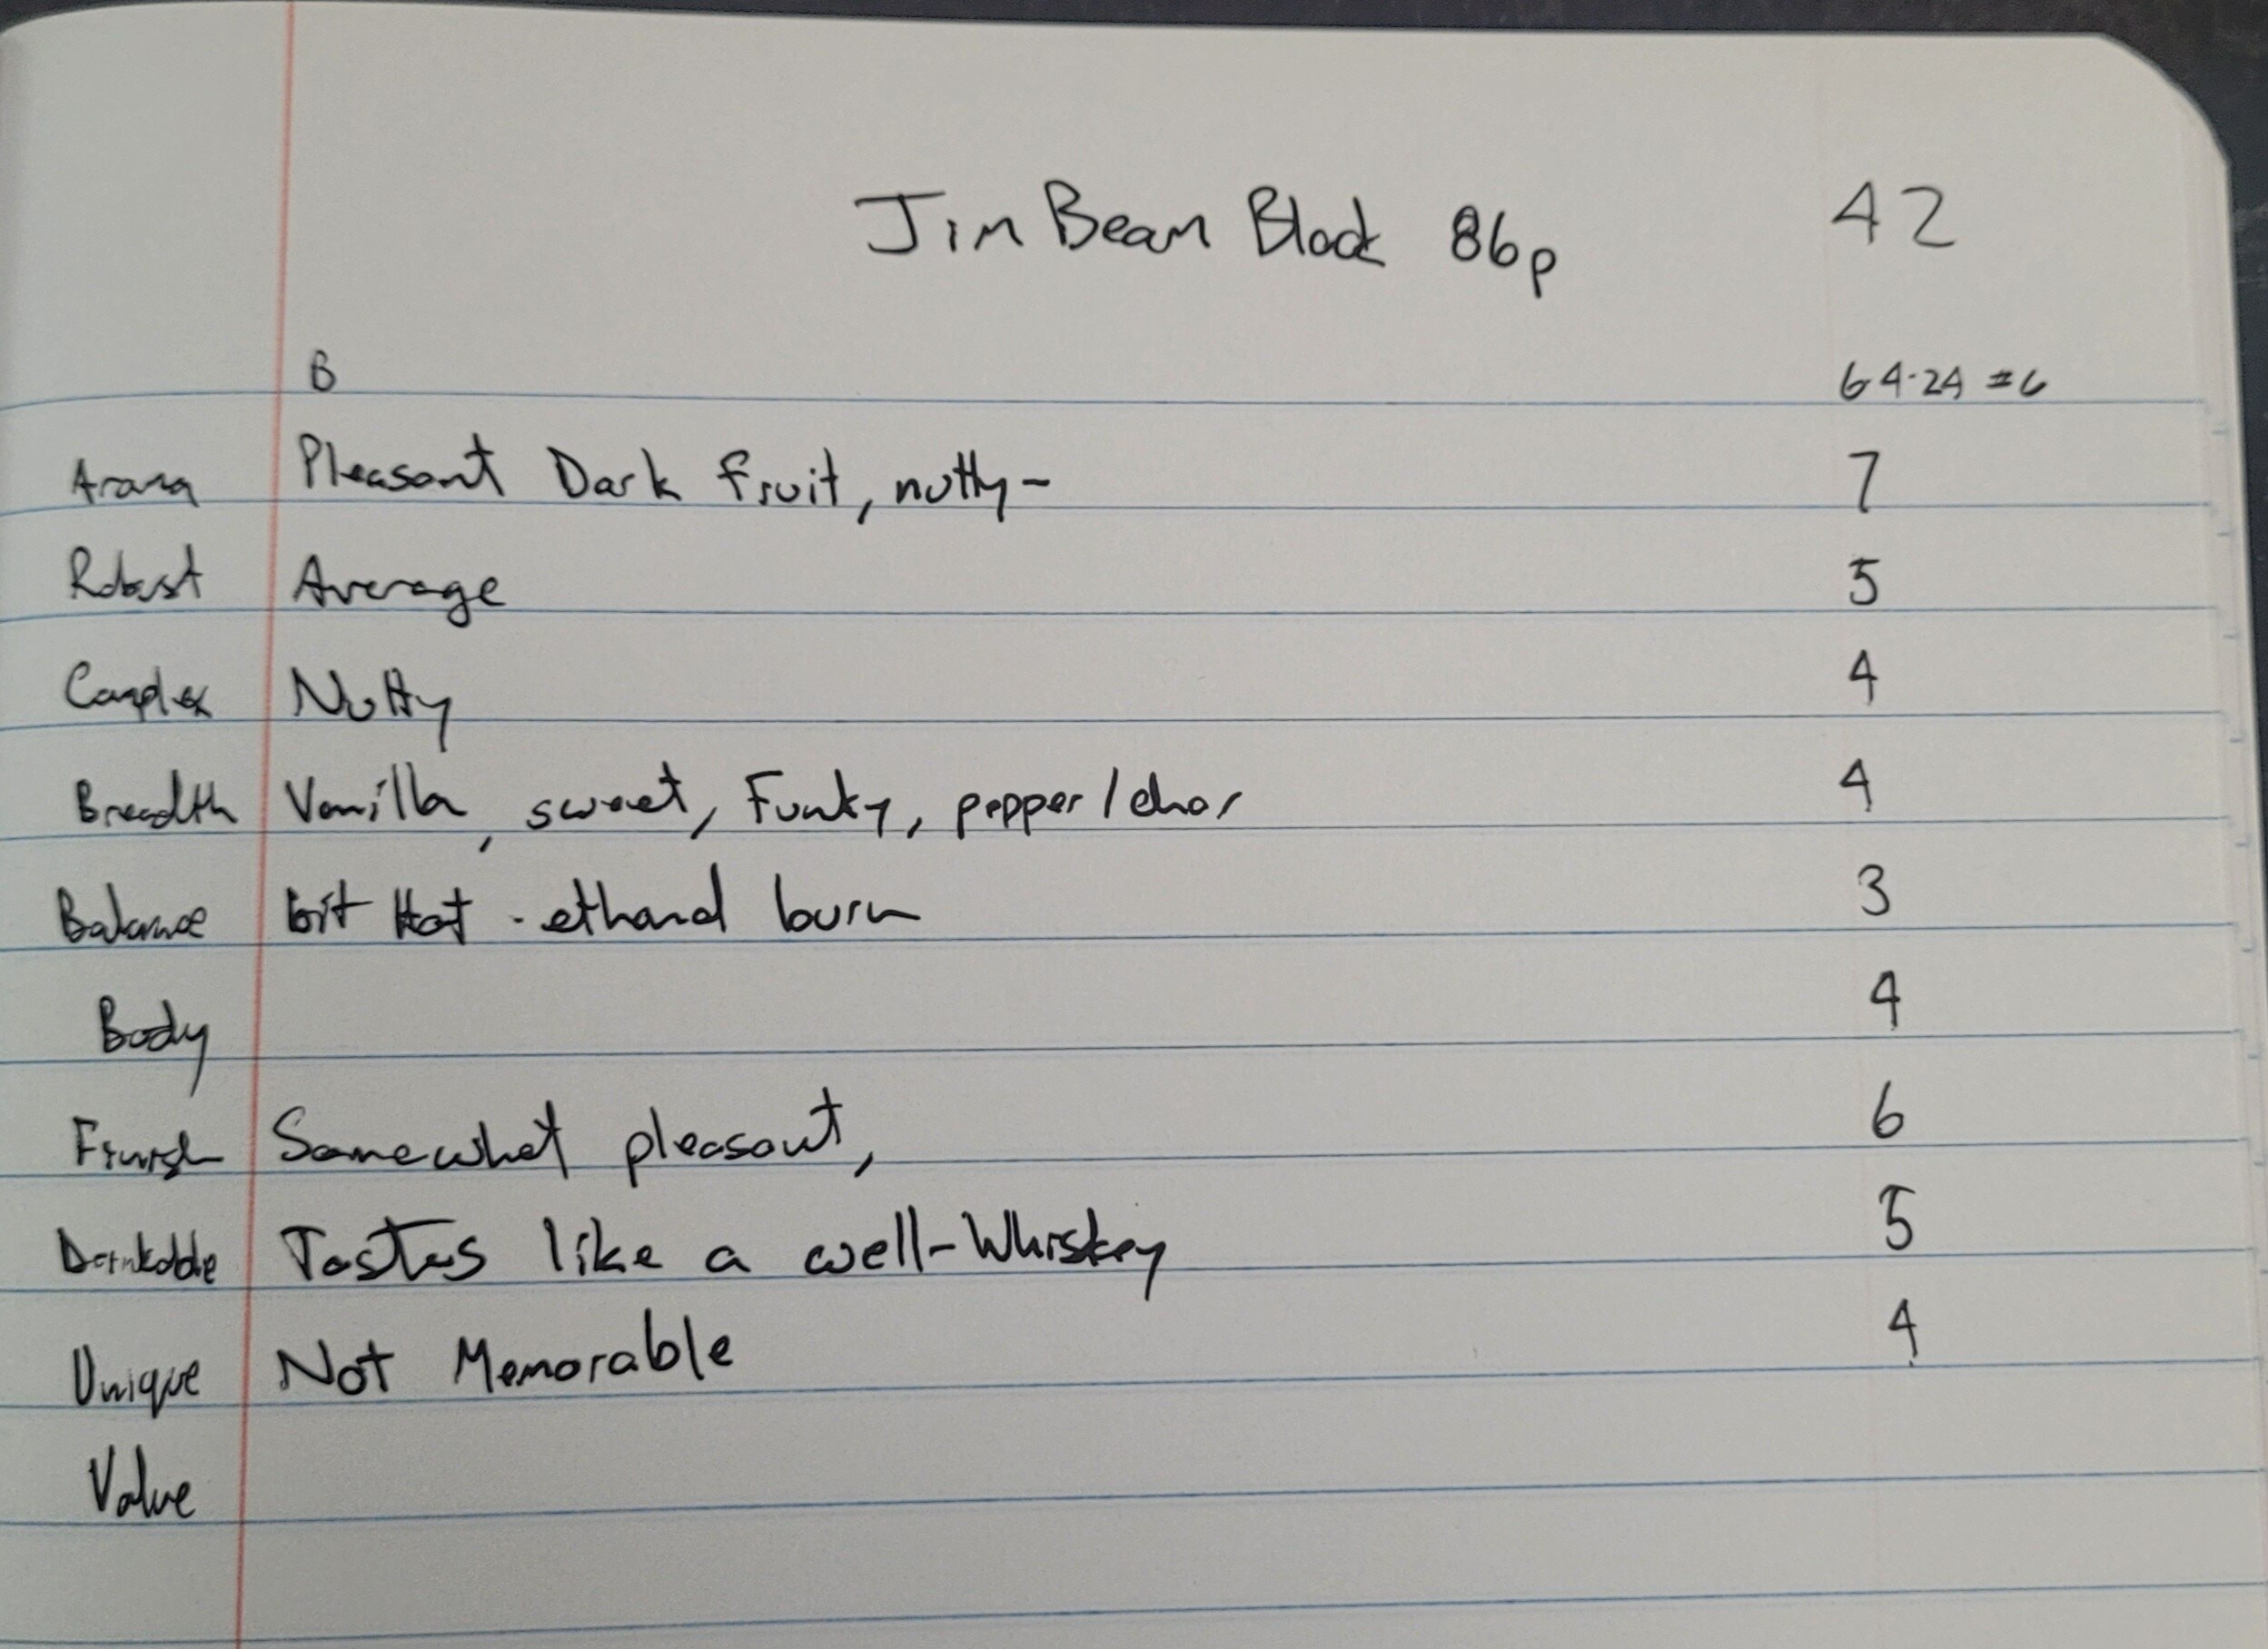 Jim Beam Black 86p 42
B 6-4-24 #6
Aroma Pleasant Dark fruit, nutty- 7
Robust Average 5
Complex Nutty 4
Breadth Vanilla, sweet, Funky, pepper/char 4
Balance bit Hot - ethanol burn 3
Body 4
Finish Somewhat pleasant, 6
Drinkable Tastes like a well-Whiskey 5
Unique Not Memorable 4
Value